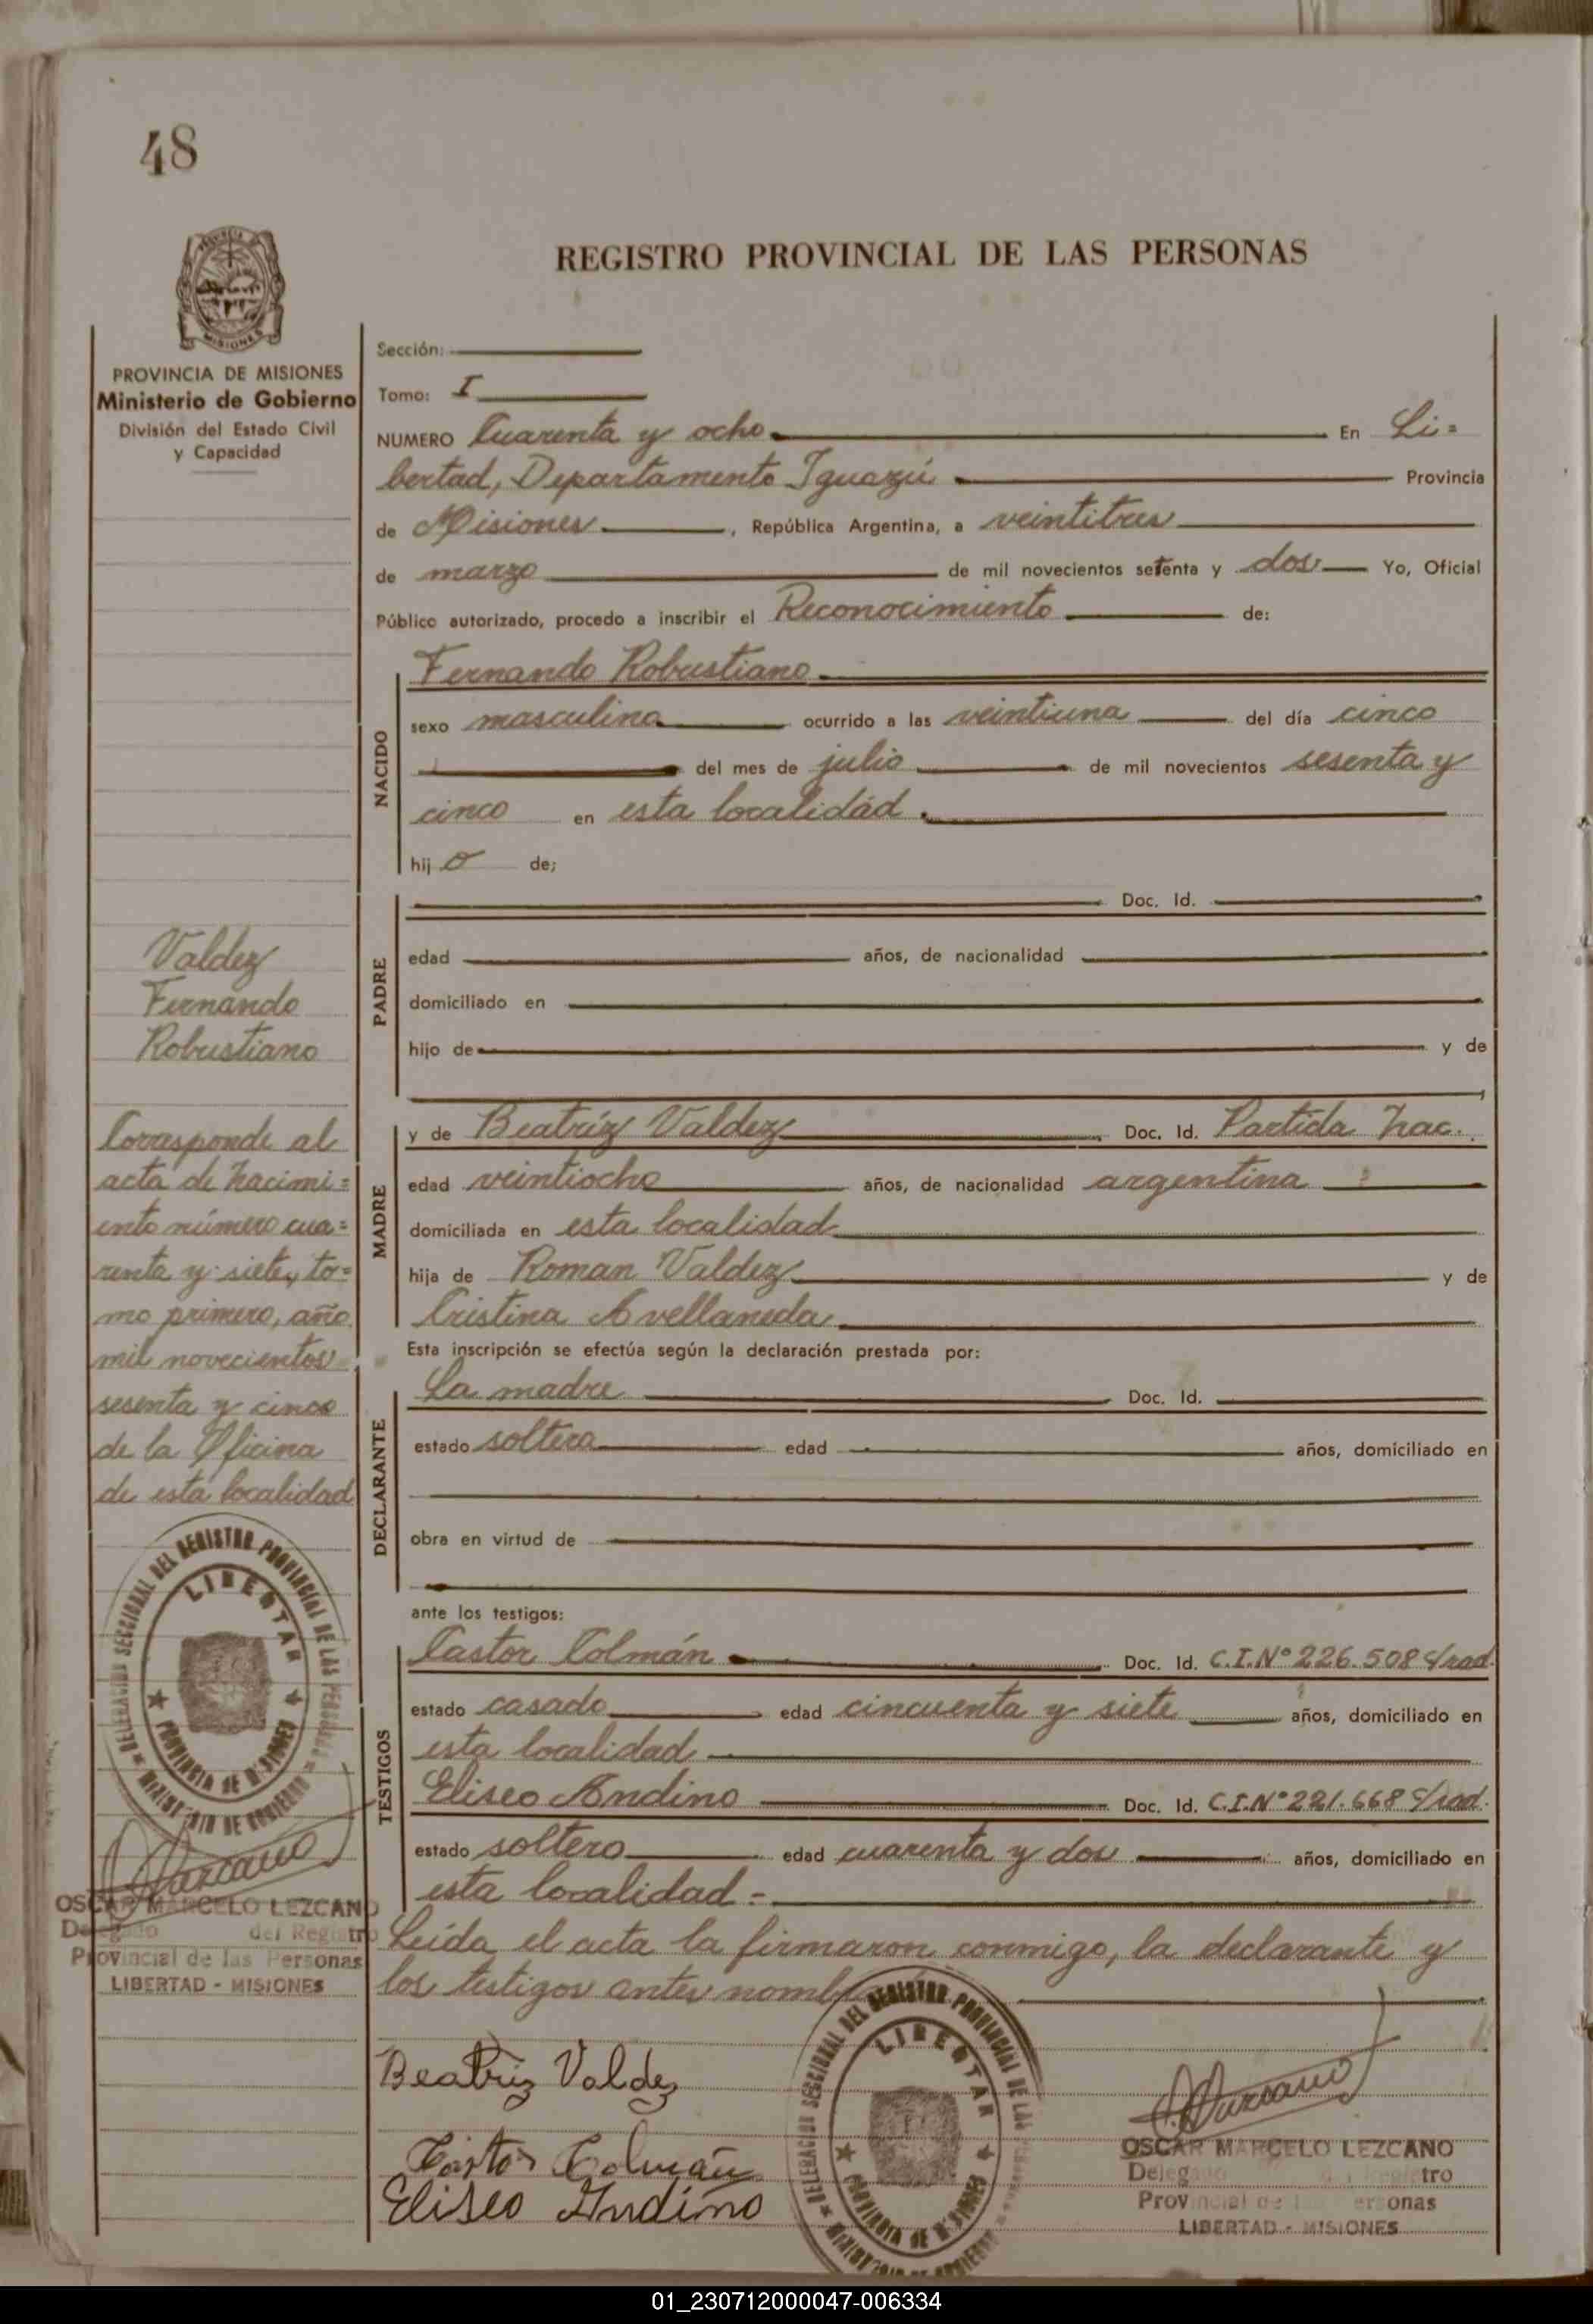 48
REGISTRO PROVINCIAL DE LAS PERSONAS
MISIONES
PROVINCIA DE MISIONES
Ministerio de Gobierno
División del Estado Civil
y Capacidad
Sección:
Tomo: I
NUMERO Cuarenta y ocho En Li=
bertad, Departamento Iguazú Provincia
de Misiones, República Argentina, a veintitres
de marzo de mil novecientos setenta y dos Yo, Oficial
Público autorizado, procedo a inscribir el Reconocimiento de:
NACIDO
Fernando Robustiano
sexo masculino ocurrido a las veintiuna del día cinco
del mes de julio de mil novecientos sesenta y
cinco en esta localidad
hij o de;
PADRE
Doc. Id.
edad años, de nacionalidad
domiciliado en
hijo de y de
Valdez
Fernando
Robustiano
MADRE
y de Beatríz Valdez Doc. Id. Partida Nac.
edad veintiocho años, de nacionalidad argentina
domiciliada en esta localidad
hija de Roman Valdez y de
Cristina Avellaneda
Corresponde al
acta de Nacimi=
ento número cua=
renta y siete, to=
mo primero, año
mil novecientos
sesenta y cinco
de la Oficina
de esta localidad
Esta inscripción se efectúa según la declaración prestada por:
DECLARANTE
La madre Doc. Id.
estado soltera edad años, domiciliado en
obra en virtud de
ante los testigos:
TESTIGOS
Castor Colmán Doc. Id. C.I.Nº 226.508 S/rad.
estado casado edad cincuenta y siete años, domiciliado en
esta localidad
Eliseo Andino Doc. Id. C.I.Nº 221.668 S/rad.
estado soltero edad cuarenta y dos años, domiciliado en
esta localidad.-
Leída el acta la firmaron conmigo, la declarante y
los testigos antes
DELEGACION SECCIONAL DEL REGISTRO PROVINCIAL DE LAS PERSONAS
LIBERTAD
PROVINCIA DE MISIONES
MINISTERIO DE GOBIERNO
OSCAR MARCELO LEZCANO
Delegado del Registro
Provincial de las Personas
LIBERTAD - MISIONES
Beatriz Valdez
Castor Colmán
Eliseo Andino
DELEGACION SECCIONAL DEL REGISTRO PROVINCIAL DE LAS
LIBERTAD
PROVINCIA DE MISIONES
MINISTERIO DE GOBIERNO
OSCAR MARCELO LEZCANO
Delegado del Registro
Provincial de las Personas
LIBERTAD - MISIONES
01_230712000047-006334